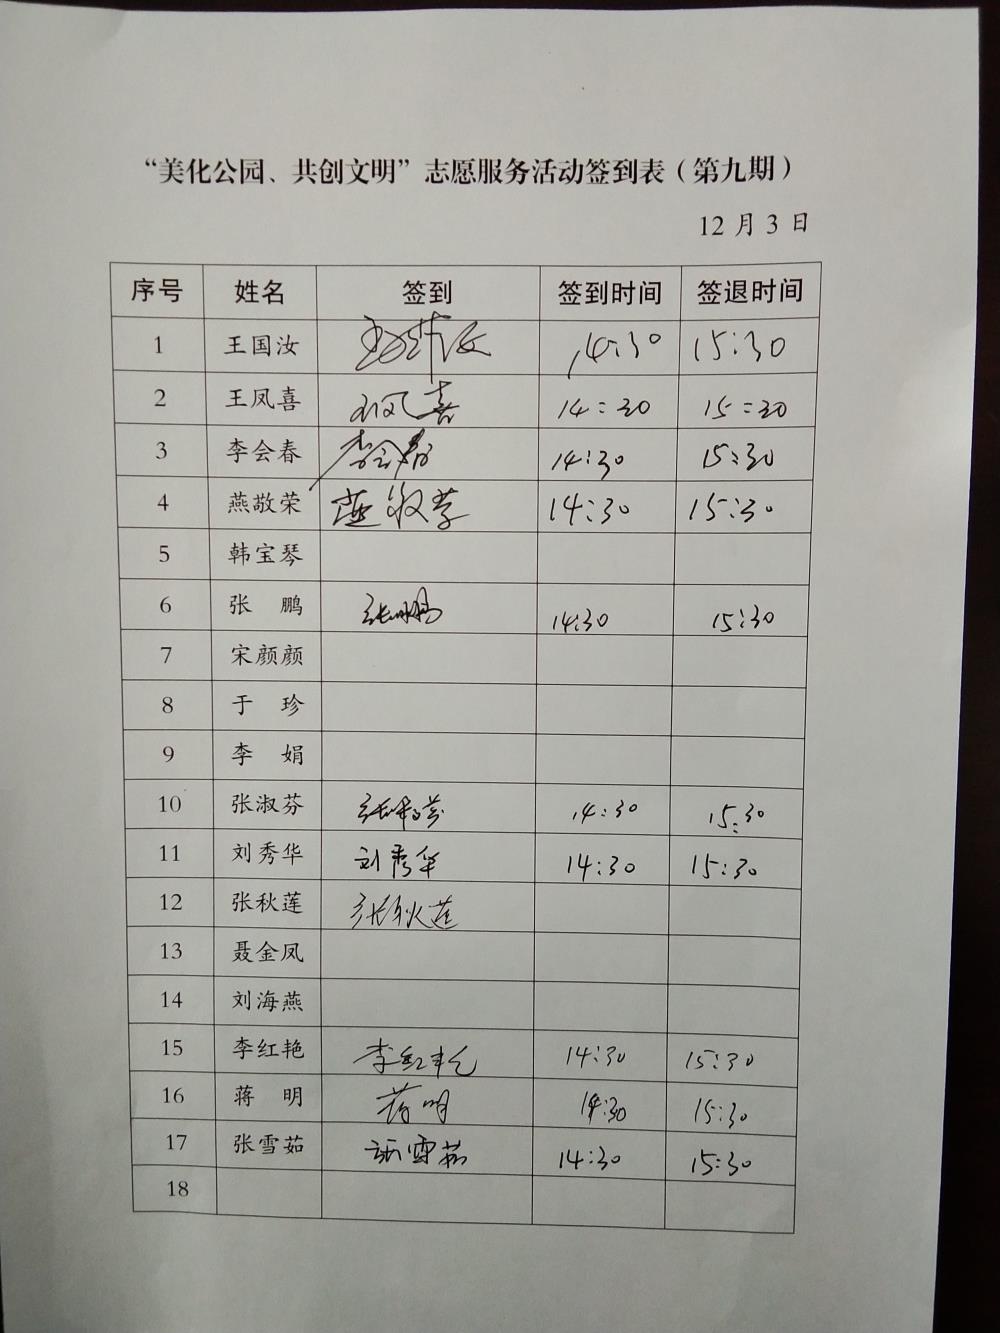 “美化公园、共创文明”志愿服务活动签到表（第九期）
12月3日
序号 姓名 签到 签到时间 签退时间
1 王国汝 王国汝 14:30 15:30
2 王凤喜 王凤喜 14:30 15:30
3 李会春 李会春 14:30 15:30
4 燕敬荣 燕敬荣 14:30 15:30
5 韩宝琴
6 张 鹏 张鹏 14:30 15:30
7 宋颜颜
8 于 珍
9 李 娟
10 张淑芬 张淑芬 14:30 15:30
11 刘秀华 刘秀华 14:30 15:30
12 张秋莲 张秋莲
13 聂金凤
14 刘海燕
15 李红艳 李红艳 14:30 15:30
16 蒋 明 蒋明 14:30 15:30
17 张雪茹 张雪茹 14:30 15:30
18